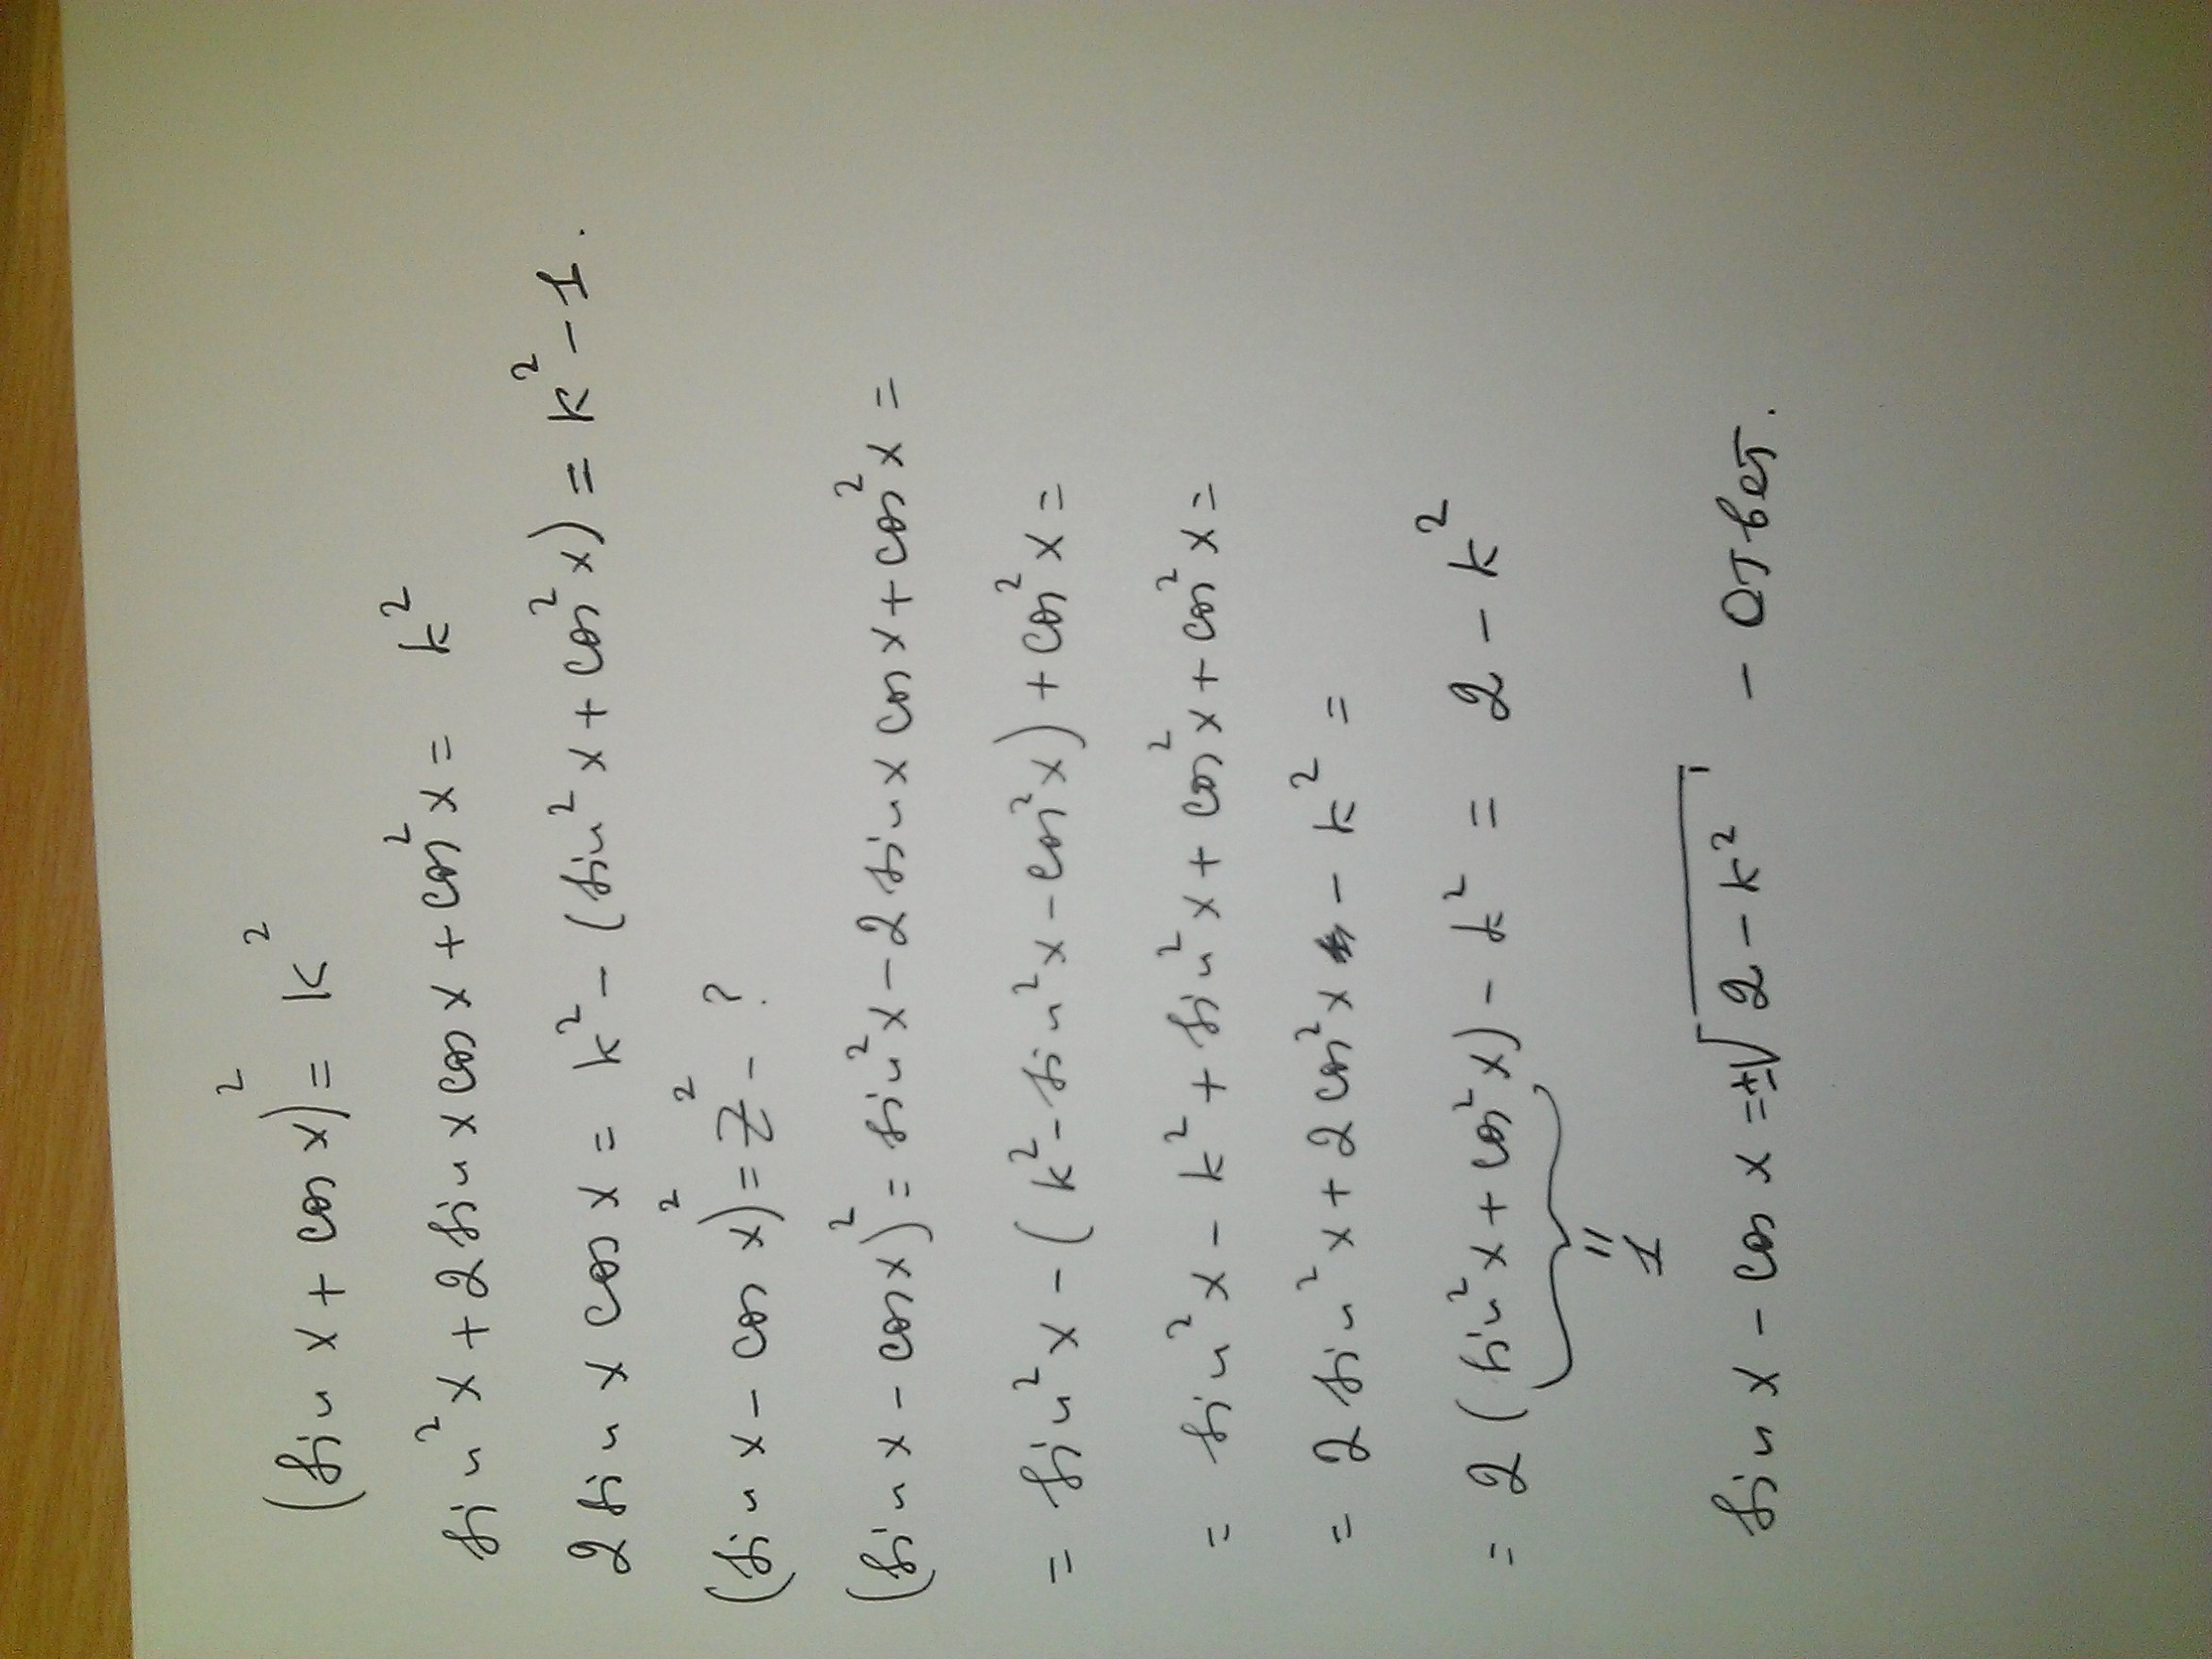 (sin x + cos x)² = k²
sin² x + 2 sin x cos x + cos² x = k²
2 sin x cos x = k² - (sin² x + cos² x) = k² - 1.
(sin x - cos x)² = z² - ?
(sin x - cos x)² = sin² x - 2 sin x cos x + cos² x =
= sin² x - (k² - sin² x - cos² x) + cos² x =
= sin² x - k² + sin² x + cos² x + cos² x =
= 2 sin² x + 2 cos² x - k² =
= 2 (sin² x + cos² x) - k² = 2 - k²
"
1
sin x - cos x = ±√2 - k² - ответ.